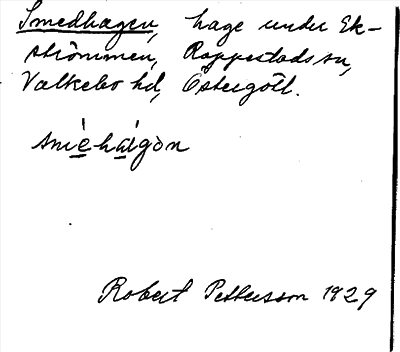 Smedhagen, hage under Ek-
strömmen, Rappestads sn,
Valkebo hd, Östergötl.
smèhàgòn
Robert Pettersson 1929